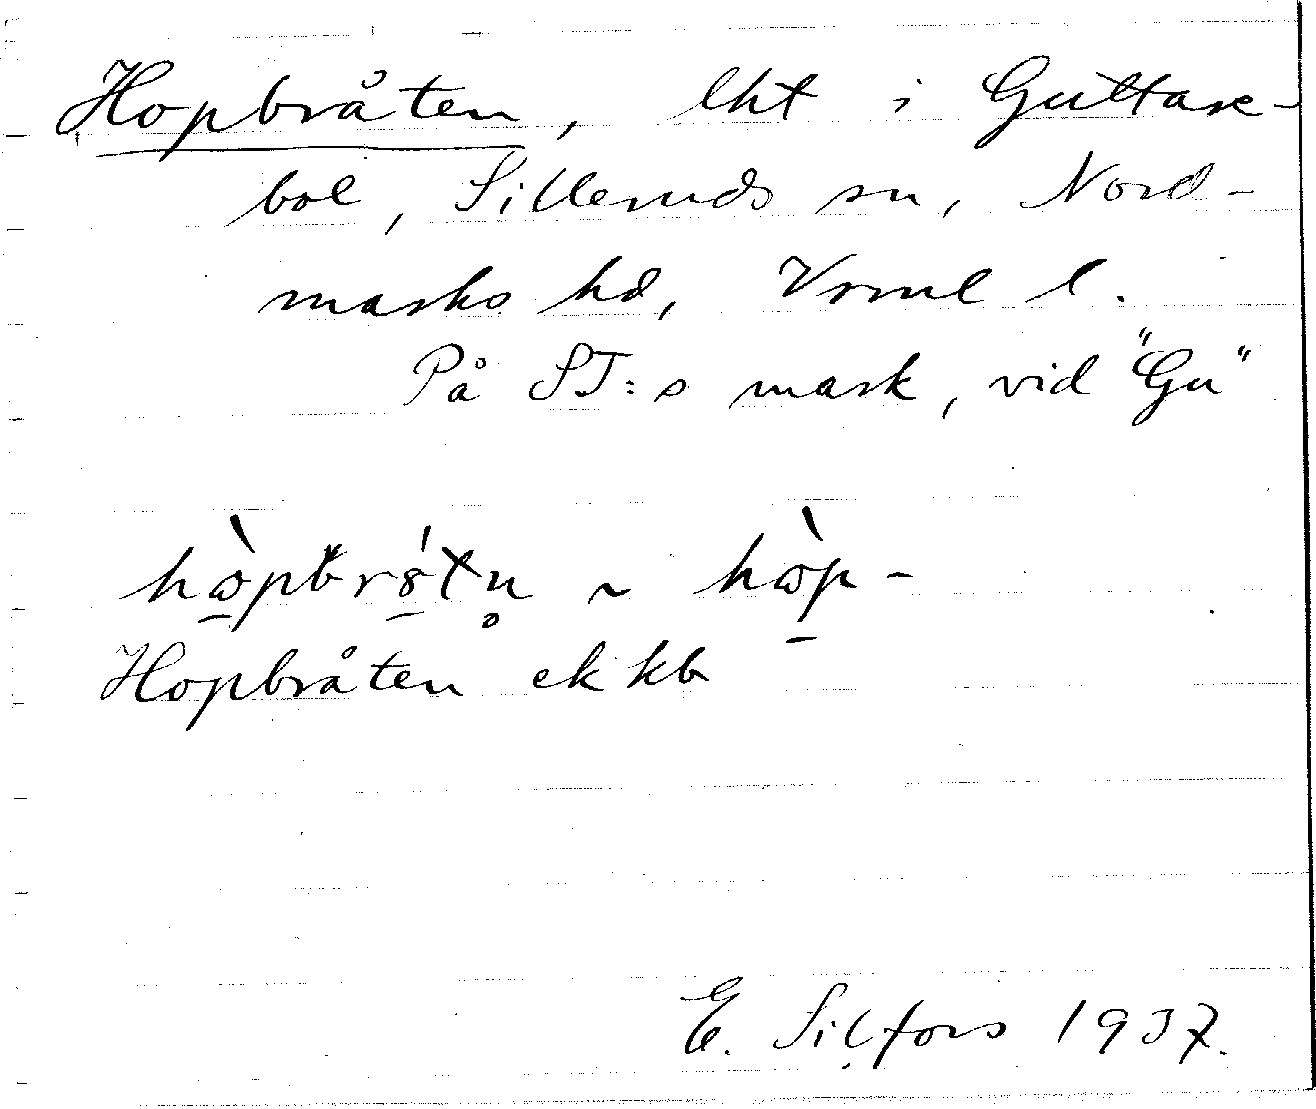 Hopbråten, lht i Guttane-
bol, Silleruds sn, Nord-
marks hd, Vrml l.
På ST:s mark, vid "Gu"
hòpbrótn̥ ~ hòp-
Hopbråten ek kb
E. Silfors 1937.